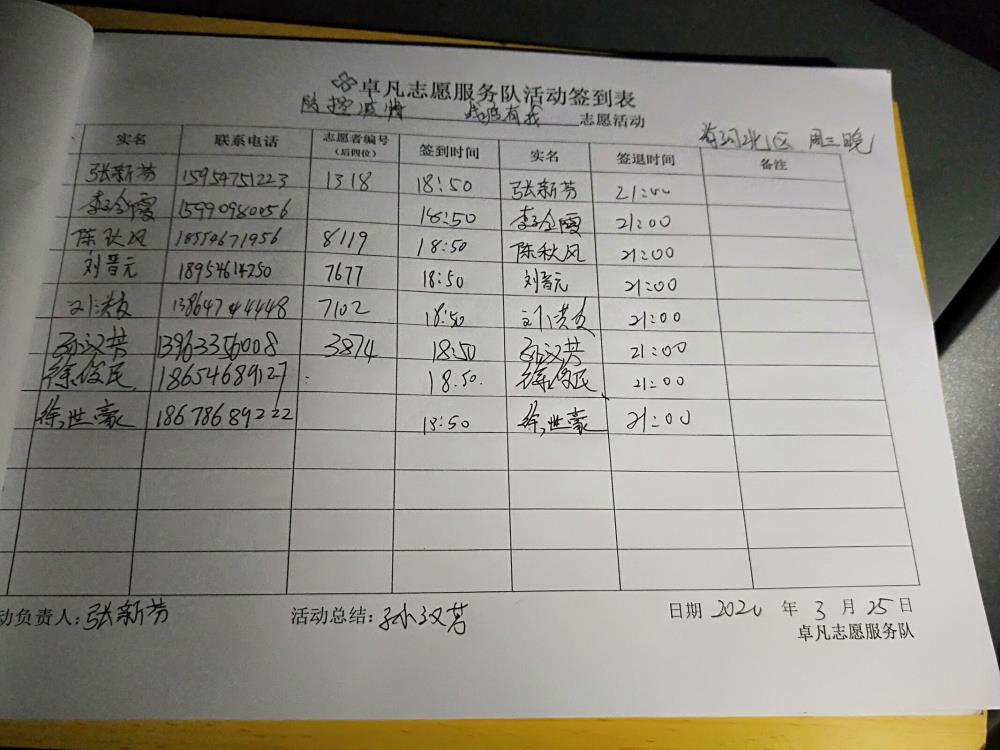 卓凡志愿服务队活动签到表
防控疫情 战疫有我 志愿活动
周三晚
实名 联系电话 志愿者编号（后四位） 签到时间 实名 签退时间 备注
张新芳 15954751223 1318 18:50 张新芳 21:00
李全霞 15990980056 18:50 李全霞 21:00
陈秋风 18554671956 8119 18:50 陈秋风 21:00
刘晋元 18954614250 7677 18:50 刘晋元 21:00
刘洪友 13864744448 7102 18:50 刘洪友 21:00
孙汉芸 13963356008 3874 18:50 孙汉芸 21:00
徐俊民 18654689127 18.50. 徐俊民 21:00
徐世豪 18678689222 18:50 徐世豪 21:00
动负责人：张新芳 活动总结：孙汉芸 日期 2020 年 3 月 25 日
卓凡志愿服务队